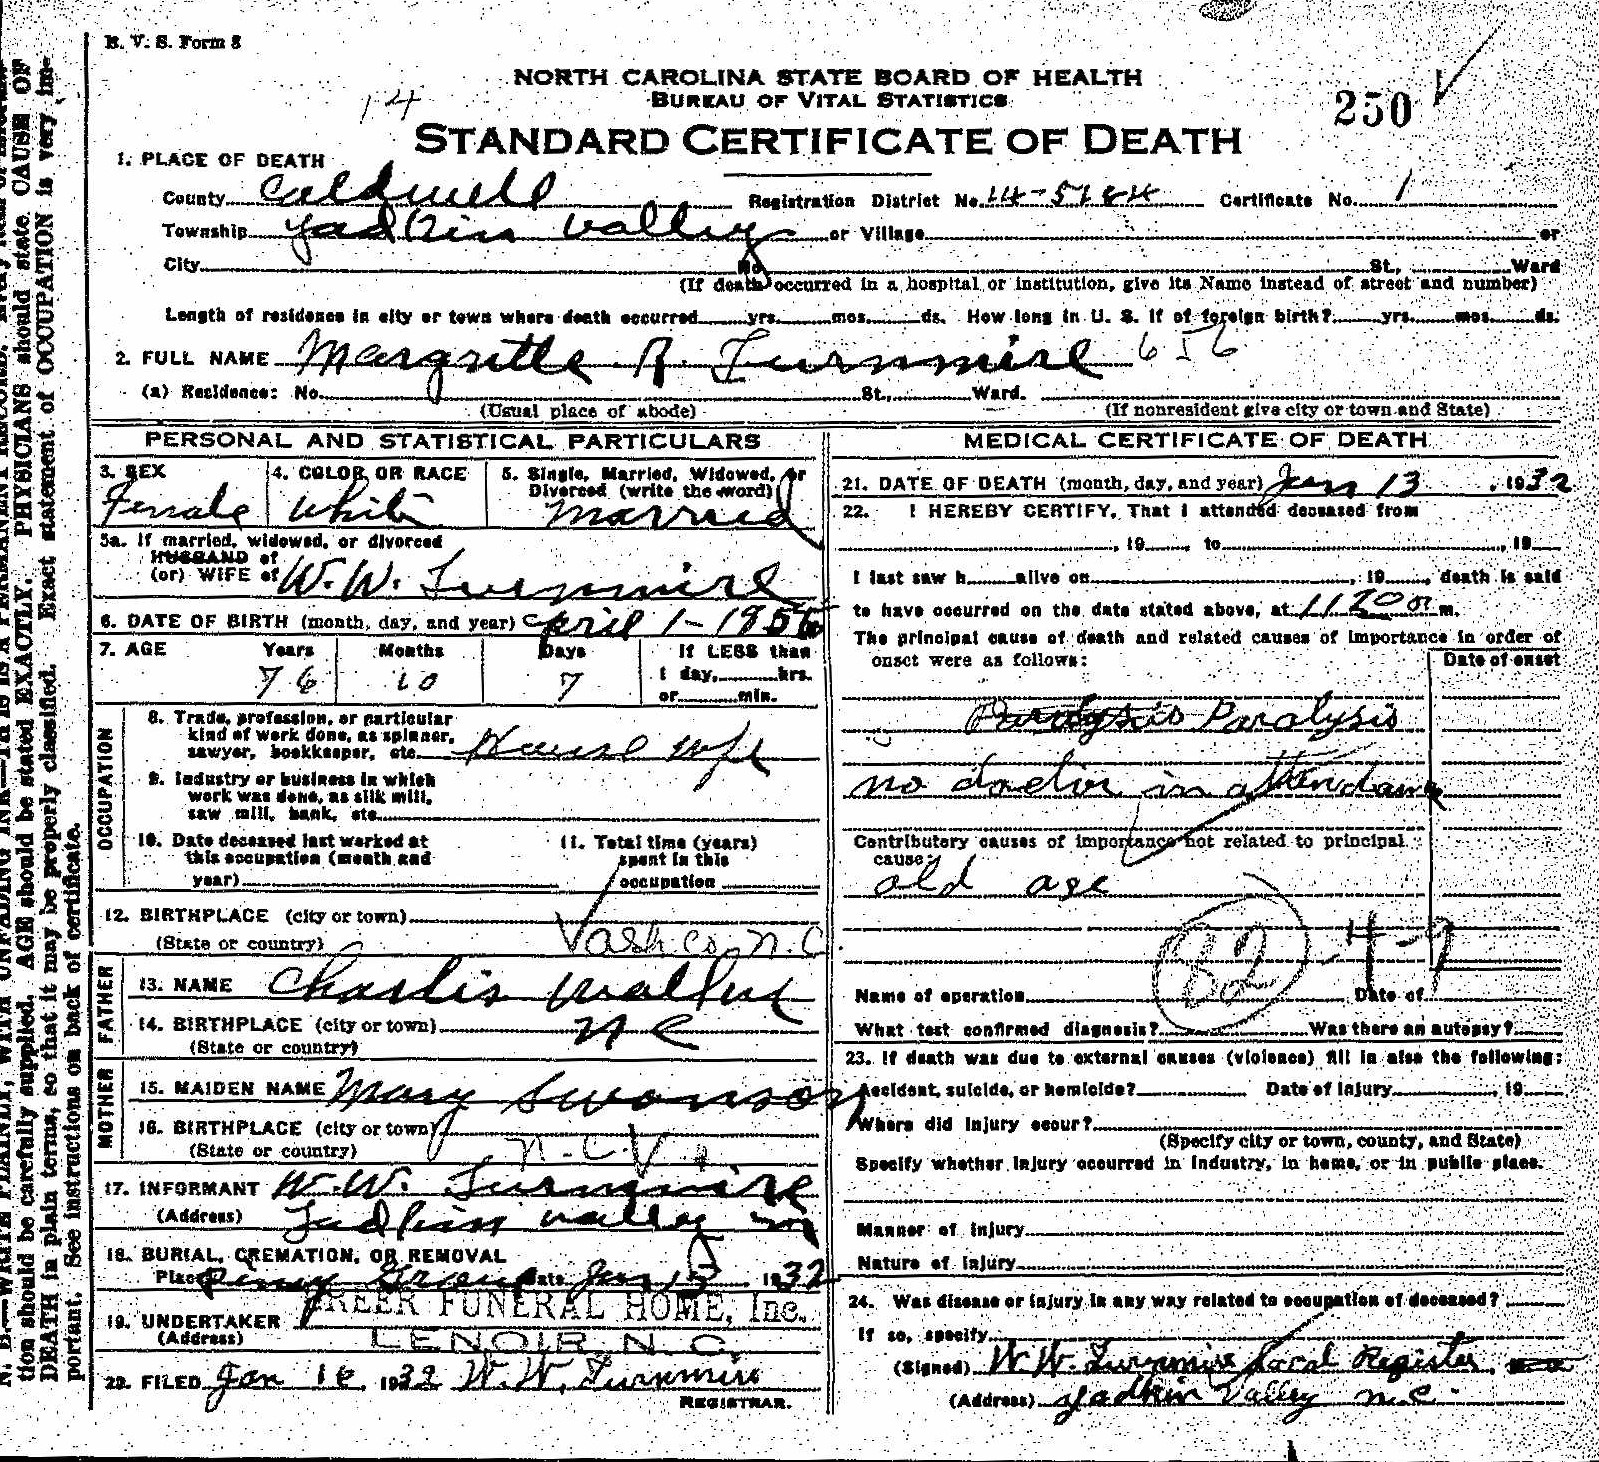 B. V. S. Form 8
14
NORTH CAROLINA STATE BOARD OF HEALTH
BUREAU OF VITAL STATISTICS
250
STANDARD CERTIFICATE OF DEATH
1. PLACE OF DEATH
County Caldwell Registration District No. 14-5184 Certificate No. 1
Township Yadkin Valley or Village or
City No. St., Ward
(If death occurred in a hospital or institution, give its Name instead of street and number)
Length of residence in city or town where death occurred yrs. mos. ds. How long in U. S. if of foreign birth? yrs. mos. ds.
2. FULL NAME Margrette R. Turnmire 656
(a) Residence: No. St., Ward.
(Usual place of abode) (If nonresident give city or town and State)
PERSONAL AND STATISTICAL PARTICULARS
3. SEX 4. COLOR OR RACE 5. Single, Married, Widowed, or
Divorced (write the word)
Female White Married
5a. If married, widowed, or divorced
HUSBAND of
(or) WIFE of W. W. Turnmire
6. DATE OF BIRTH (month, day, and year) April 1-1855
7. AGE Years Months Days If LESS than
76 10 7 1 day, hrs.
or min.
OCCUPATION
8. Trade, profession, or particular
kind of work done, as spinner,
sawyer, bookkeeper, etc. House wife
9. Industry or business in which
work was done, as silk mill,
saw mill, bank, etc.
10. Date deceased last worked at
this occupation (month and
year)
11. Total time (years)
spent in this
occupation
12. BIRTHPLACE (city or town)
(State or country) Ash co. N. C.
FATHER
13. NAME Charlis
14. BIRTHPLACE (city or town) N C
(State or country)
MOTHER
15. MAIDEN NAME Mary Swonson
16. BIRTHPLACE (city or town)
(State or country) N. C.
17. INFORMANT W. W. Turnmire
(Address) Yadkin Valley
18. BURIAL, CREMATION, OR REMOVAL
Place Piney Grove Date Jan 15, 1932
19. UNDERTAKER GREER FUNERAL HOME, Inc.
(Address) LENOIR, N. C.
20. FILED Jan 16, 1932 W. W. Turnmire
REGISTRAR.
MEDICAL CERTIFICATE OF DEATH
21. DATE OF DEATH (month, day, and year) Jan 13, 1932
22. I HEREBY CERTIFY, That I attended deceased from
, 19 , to , 19
I last saw h alive on , 19 , death is said
to have occurred on the date stated above, at 1120 m.
The principal cause of death and related causes of importance in order of
onset were as follows: Date of onset
Paralysis Paralysis
no doctor in attendance
Contributory causes of importance not related to principal
cause:
old age
82 - 4-9
Name of operation Date of
What test confirmed diagnosis? Was there an autopsy?
23. If death was due to external causes (violence) fill in also the following:
Accident, suicide, or homicide? Date of injury , 19
Where did injury occur?
(Specify city or town, county, and State)
Specify whether injury occurred in industry, in home, or in public place.
Manner of injury
Nature of injury
24. Was disease or injury in any way related to occupation of deceased?
If so, specify
(Signed) W. W. Turnmire Local Register
(Address) Yadkin Valley N. C.
N. B.—WRITE PLAINLY, WITH UNFADING INK—THIS IS A PERMANENT RECORD. Every item of
tion should be carefully supplied. AGE should be stated EXACTLY. PHYSICIANS should state CAUSE OF
DEATH in plain terms, so that it may be properly classified. Exact statement of OCCUPATION is very im-
portant. See instructions on back of certificate.